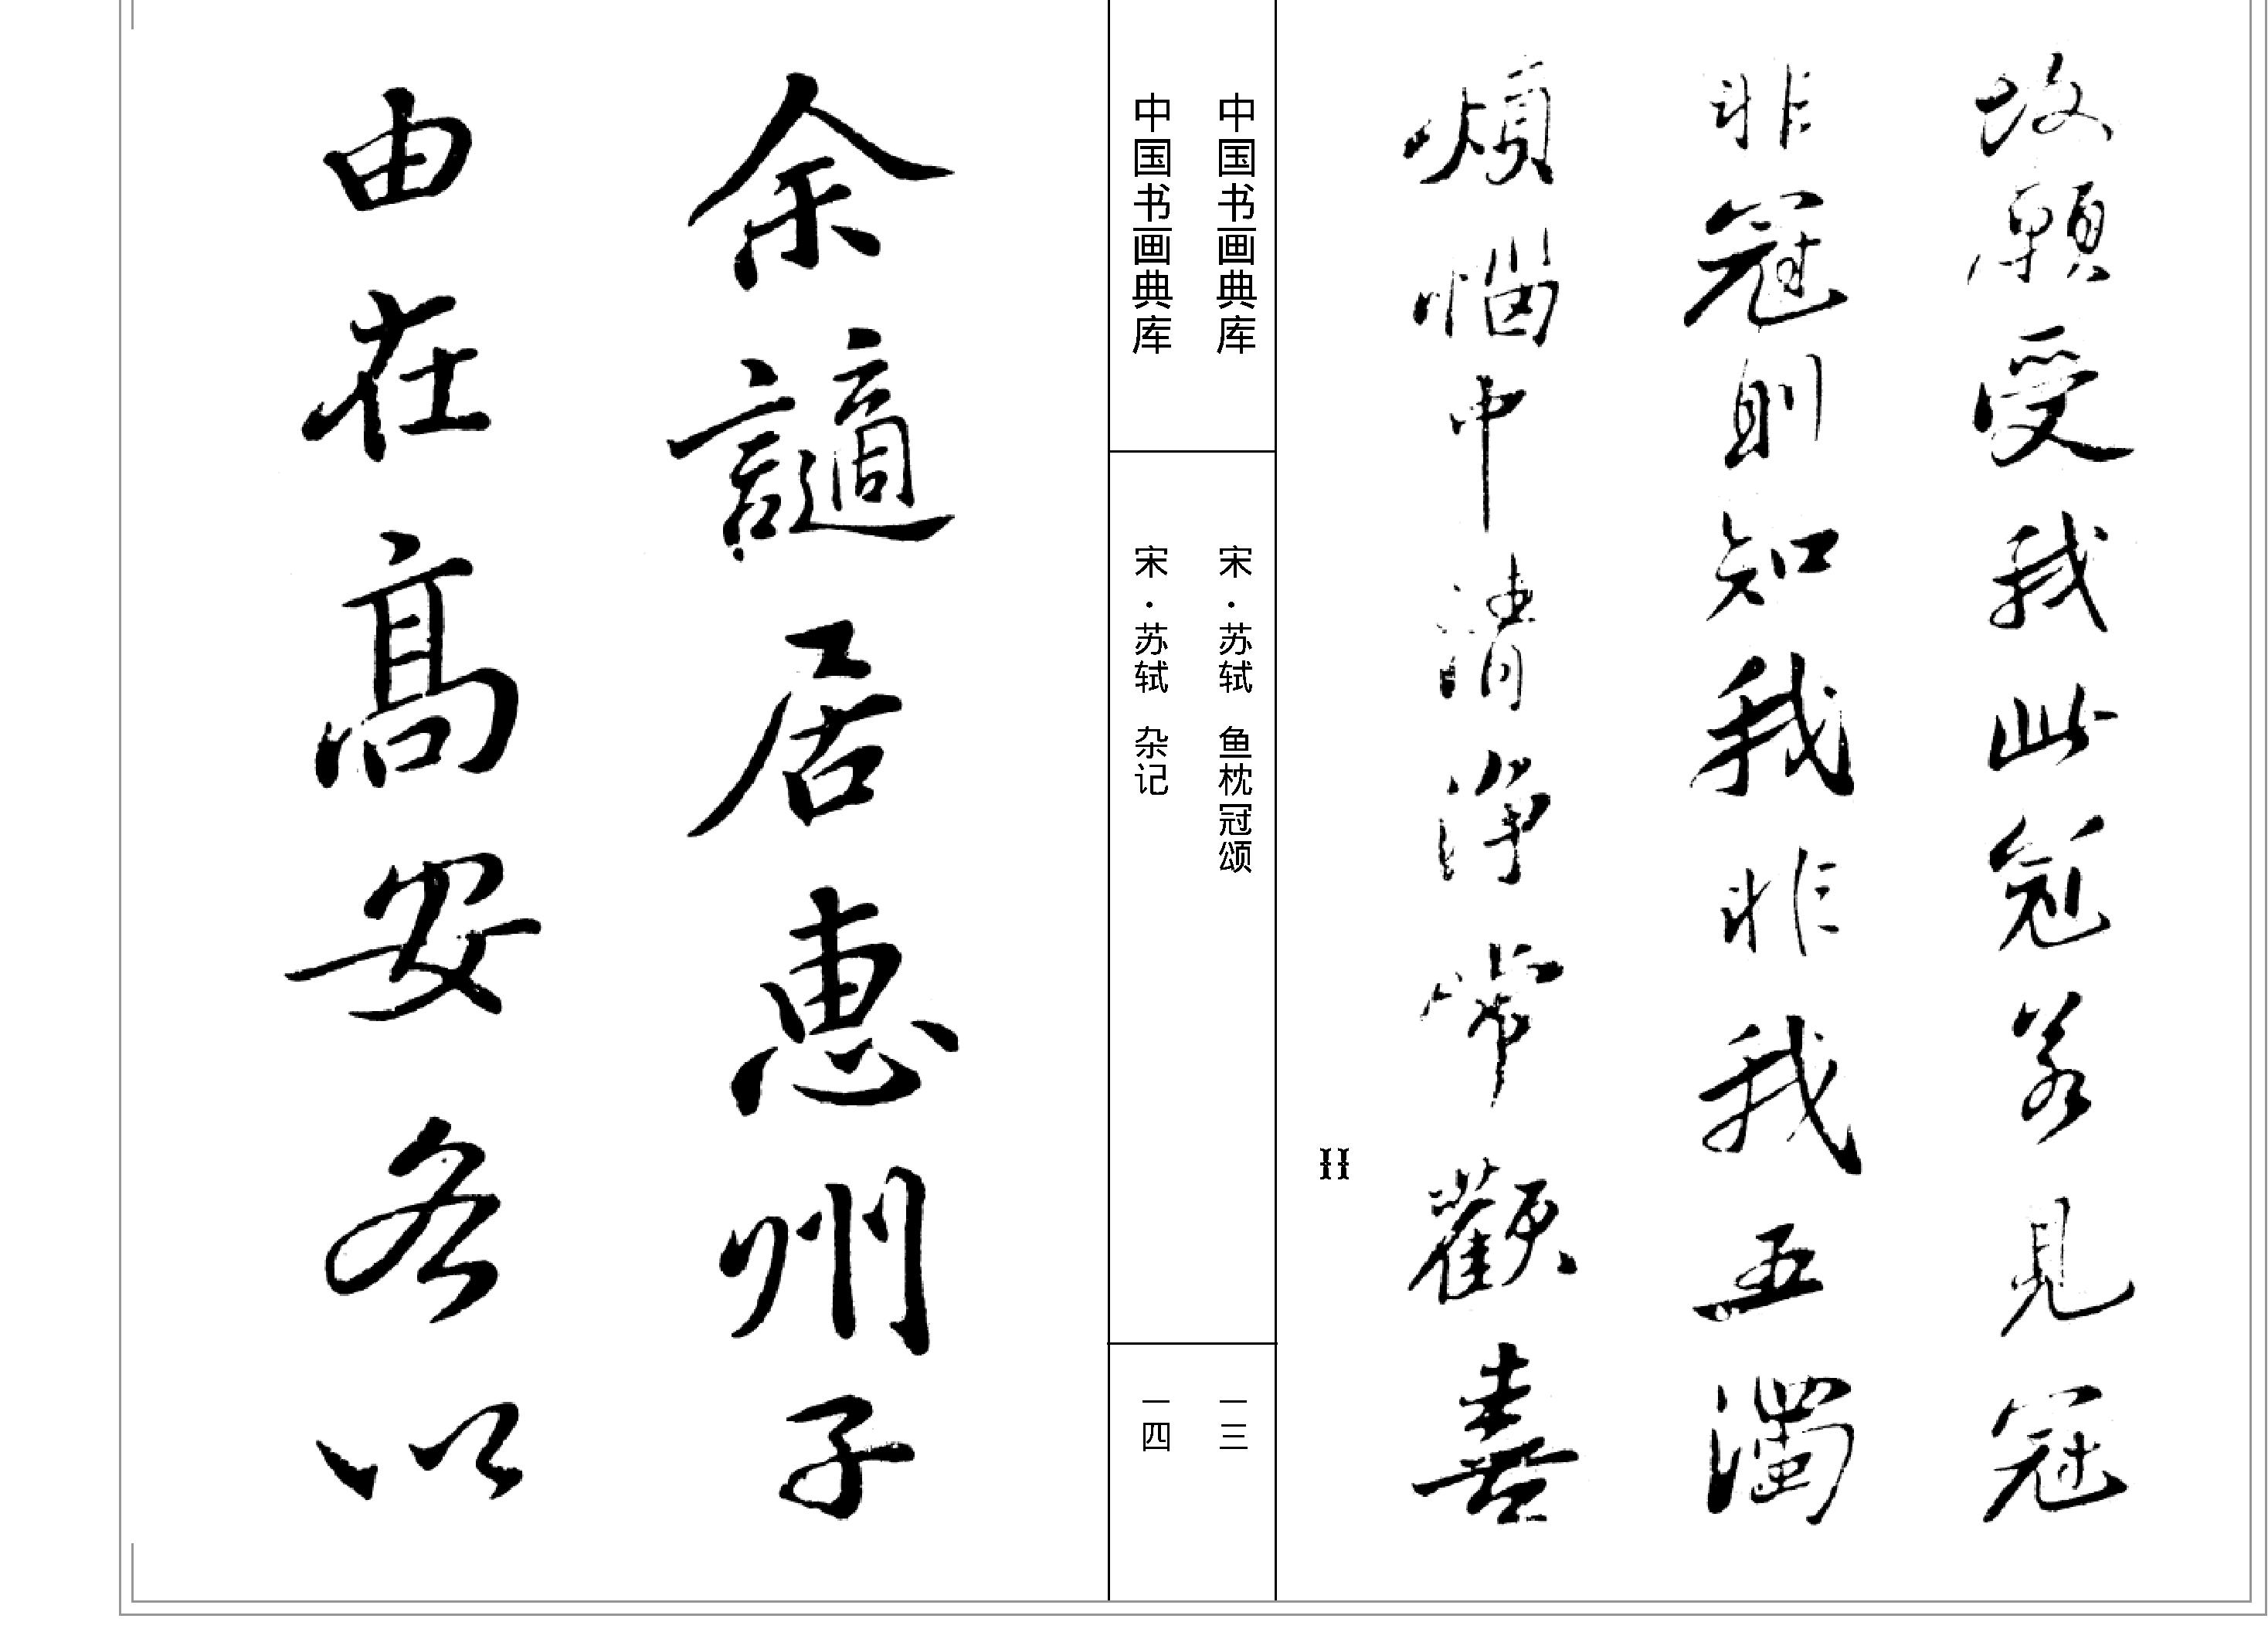 故願受我此冠若見冠
非冠則知我非我五濁
煩惱中清淨常歡喜
中国书画典库
宋·苏轼 鱼枕冠颂
一三
中国书画典库
宋·苏轼 杂记
一四
余謫居惠州子
由在高安各以